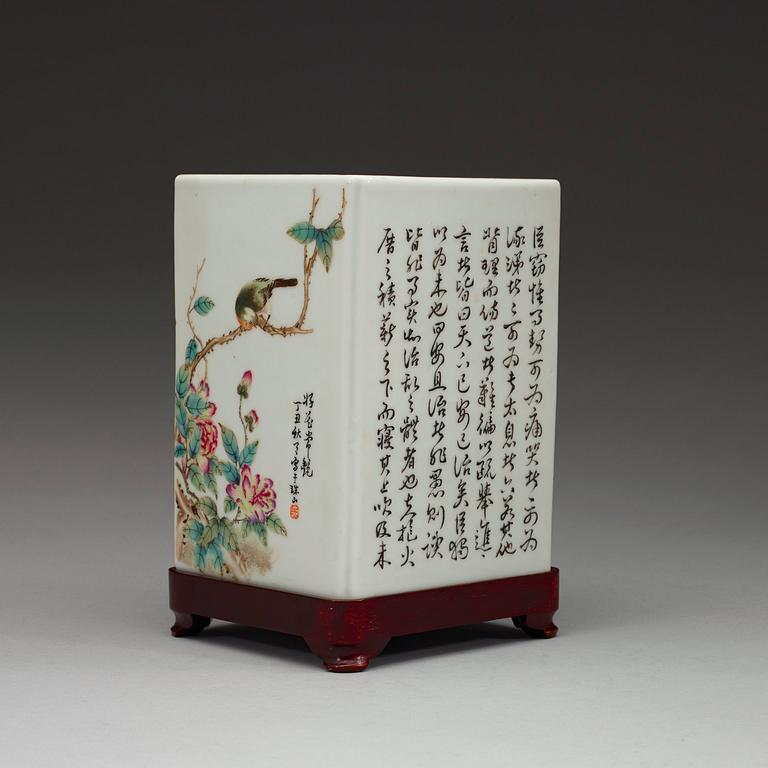 臣竊惟事勢可為痛哭者一可為
流涕者二可為長太息者六若其他
背理而傷道者難徧以疏舉進
言者皆曰天下已安已治矣臣獨
以為未也曰安且治者非愚則諛
皆非事實知治亂之體者也夫抱火
厝之積薪之下而寢其上及未
好花常艷
丁丑秋月寫于珠山